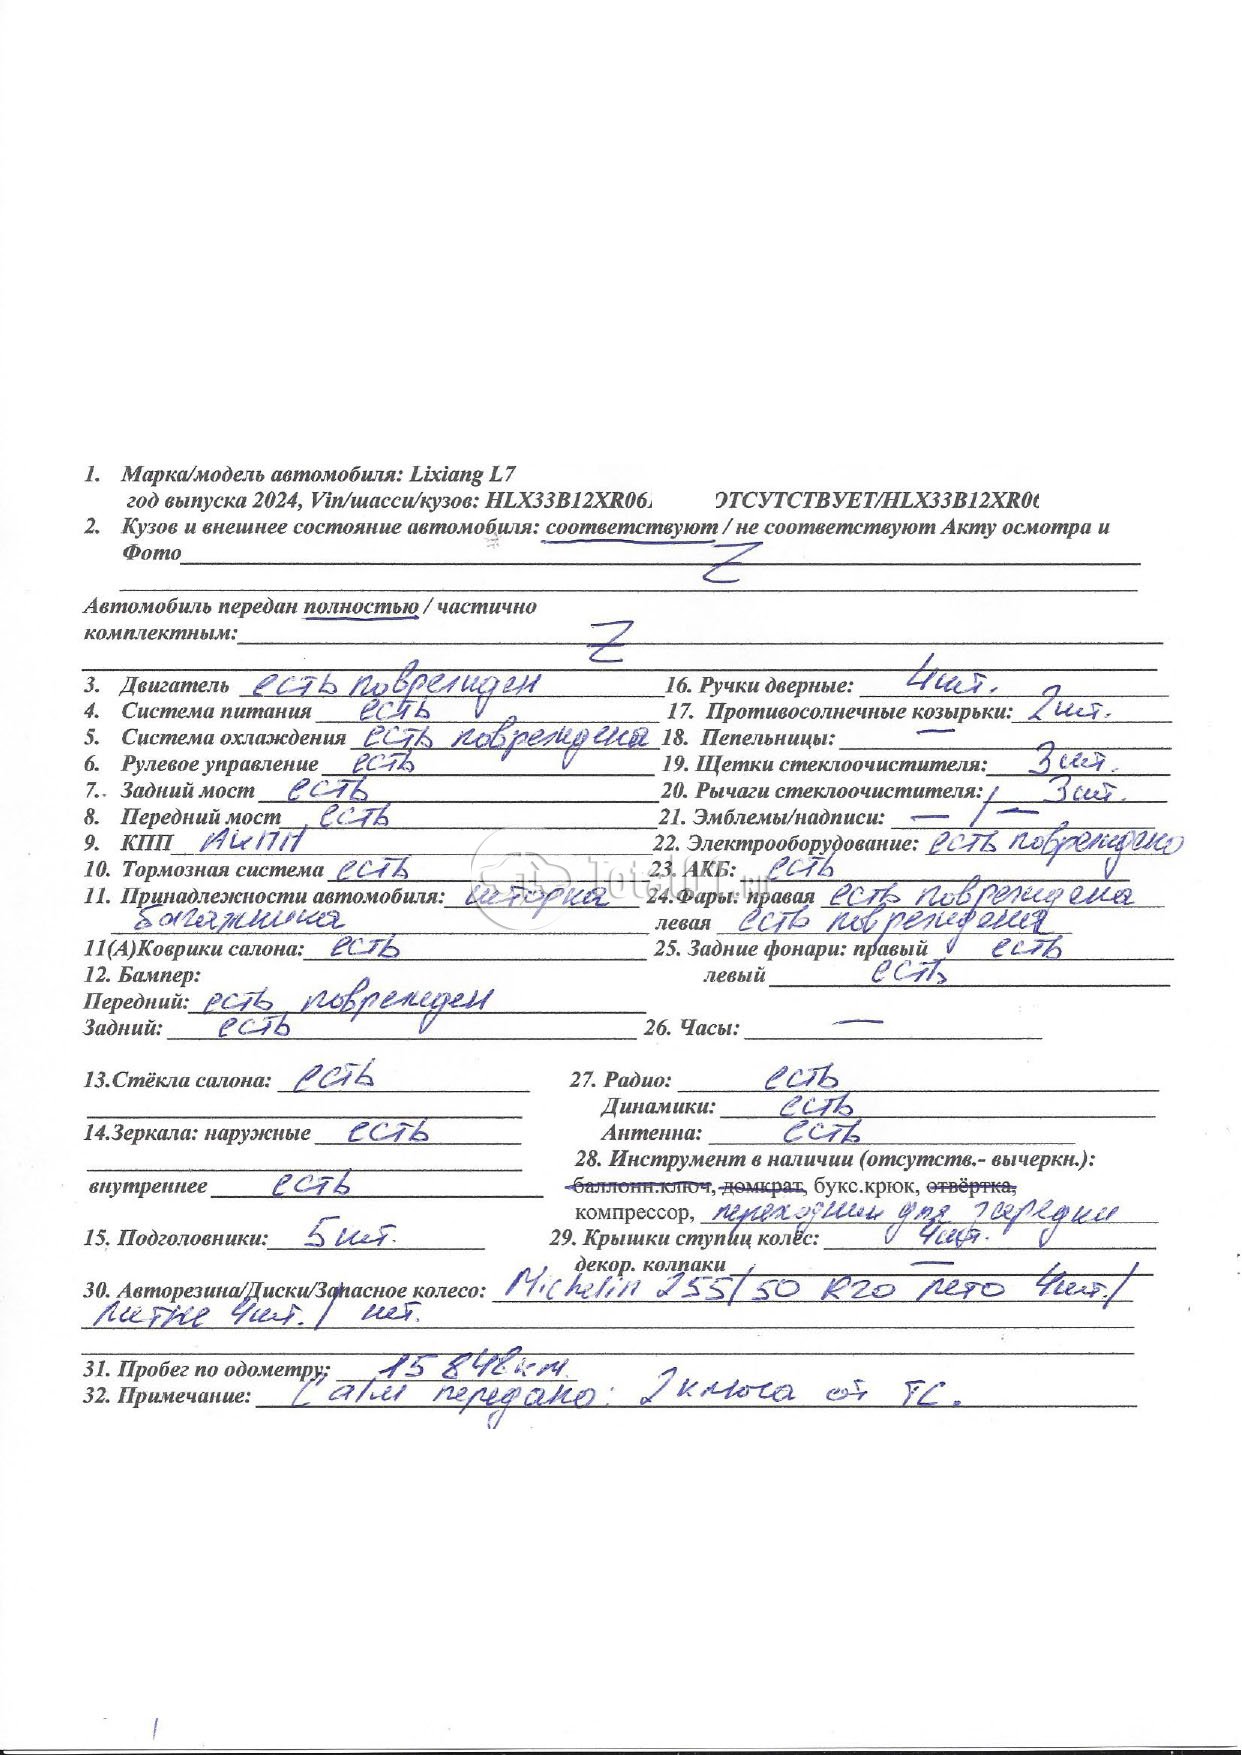 1. Марка/модель автомобиля: Lixiang L7
год выпуска 2024, Vin/шасси/кузов: HLX33B12XR06 ОТСУТСТВУЕТ/HLX33B12XR06
2. Кузов и внешнее состояние автомобиля: соответствуют / не соответствуют Акту осмотра и
Фото Z
Автомобиль передан полностью / частично
комплектным: Z
3. Двигатель есть повреждён 16. Ручки дверные: 4шт.
4. Система питания есть 17. Противосолнечные козырьки: 2шт.
5. Система охлаждения есть повреждена 18. Пепельницы: —
6. Рулевое управление есть 19. Щетки стеклоочистителя: 3шт.
7. Задний мост есть 20. Рычаги стеклоочистителя: 3шт.
8. Передний мост есть 21. Эмблемы/надписи: — / —
9. КПП АКПП 22. Электрооборудование: есть повреждено
10. Тормозная система есть 23. АКБ: есть
11. Принадлежности автомобиля: шторка 24. Фары: правая есть повреждена
багажника левая есть повреждена
11(А)Коврики салона: есть 25. Задние фонари: правый есть
12. Бампер: левый есть
Передний: есть повреждён
Задний: есть 26. Часы: —
13.Стёкла салона: есть 27. Радио: есть
Динамики: есть
14.Зеркала: наружные есть Антенна: есть
28. Инструмент в наличии (отсутств.- вычеркн.):
внутреннее есть баллонн.ключ, домкрат, букс.крюк, отвёртка,
компрессор, переходник для зарядки
15. Подголовники: 5шт. 29. Крышки ступиц колёс: 4шт.
декор. колпаки —
30. Авторезина/Диски/Запасное колесо: Michelin 255/50 R20 лето 4шт./
литые 4шт. / нет.
31. Пробег по одометру: 15 848км
32. Примечание: С а/м передано: 2 ключа от ТС.
Total01.ru